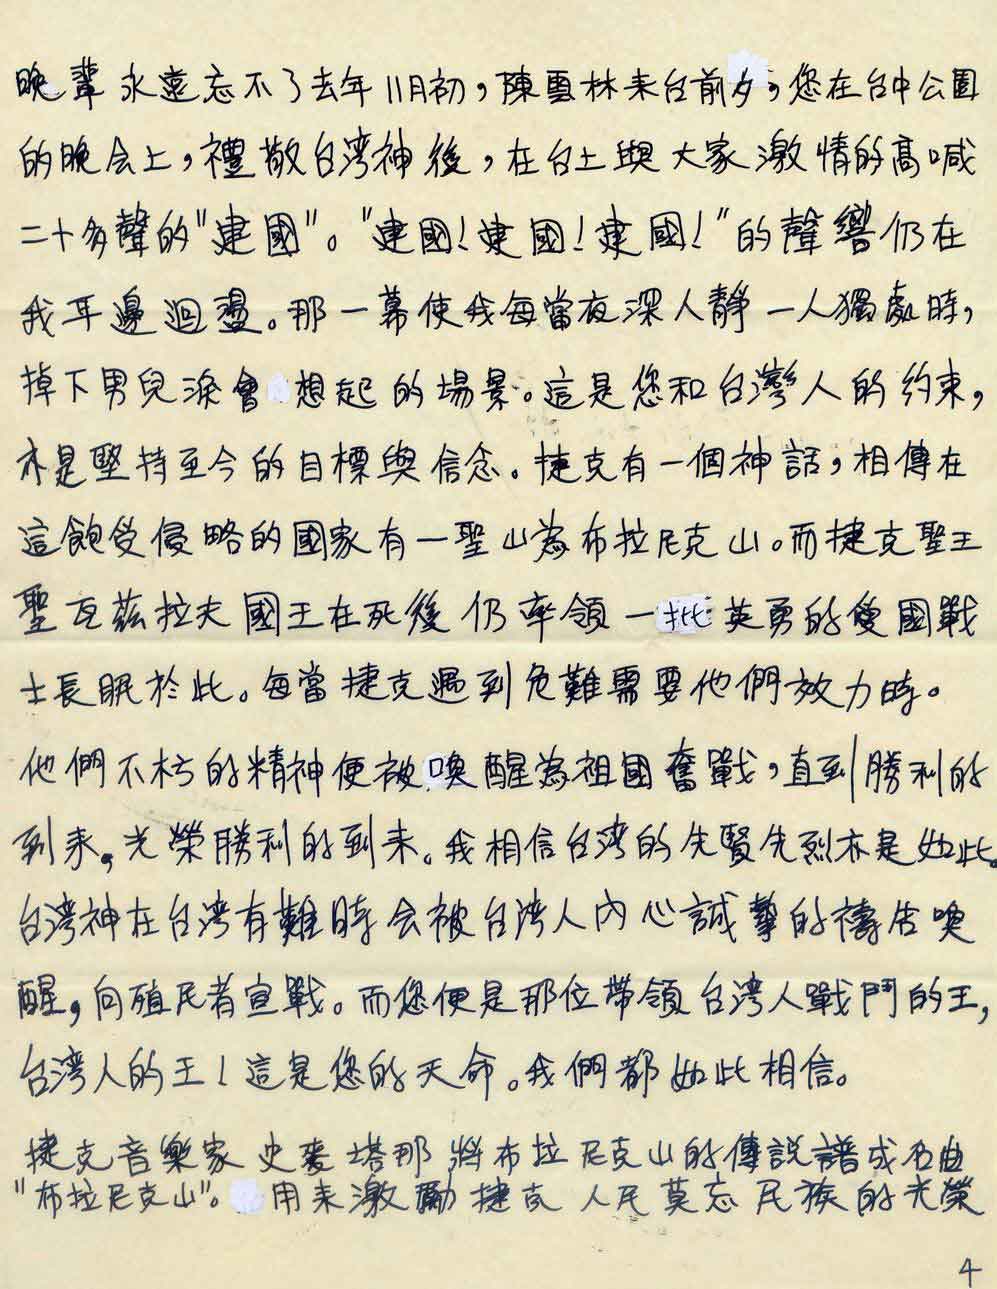 晚輩永遠忘不了去年11月初，陳雲林来台前夕，您在台中公園
的晚会上，禮敬台湾神後，在台上與大家激情的高喊
二十多聲的"建國"。"建國！建國！建國！"的聲響仍在
我耳邊迴盪。那一幕使我每當夜深人靜一人獨處時，
掉下男兒淚會想起的場景。這是您和台灣人的約束，
亦是堅持至今的目標與信念。捷克有一個神話，相傳在
這飽受侵略的國家有一聖山為布拉尼克山。而捷克聖王
聖瓦茲拉夫國王在死後仍率領一批英勇的愛國戰
士長眠於此。每當捷克遇到危難需要他們效力時。
他們不朽的精神便被喚醒為祖國奮戰，直到勝利的
到来，光榮勝利的到来。我相信台湾的先賢先烈亦是如此。
台湾神在台湾有難時会被台湾人內心誠摯的禱告喚
醒，向殖民者宣戰。而您便是那位帶領台湾人戰鬥的王，
台湾人的王！這是您的天命。我們都如此相信。
捷克音樂家史麥塔那將布拉尼克山的傳說譜成名曲
"布拉尼克山"。用来激勵捷克人民莫忘民族的光榮
4